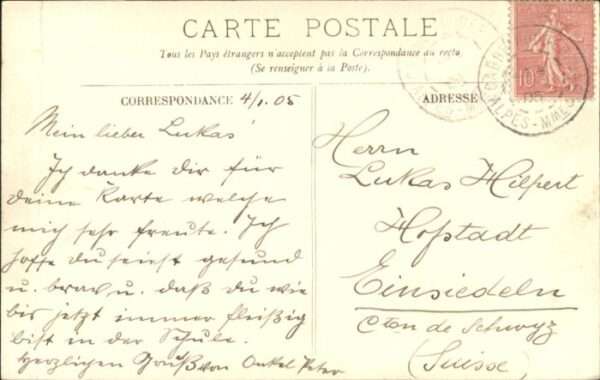 CARTE POSTALE
Tous les Pays étrangers n'acceptent pas la Correspondance au recto
(Se renseigner à la Poste).
CORRESPONDANCE 4/1.05
Mein lieber Lukas!
Ich danke dir für
deine Karte welche
mich sehr freute. Ich
hoffe du seiest gesund
u. brav, u. daß du wie
bis jetzt immer fleißig
bist in der Schule.
Herzlichen Gruß von Onkel Peter
ADRESSE
Herrn
Lukas Hilpert
Hofstadt
Einsiedeln
Cton de Schwyz
(Suisse)
10
ALPES-MMES